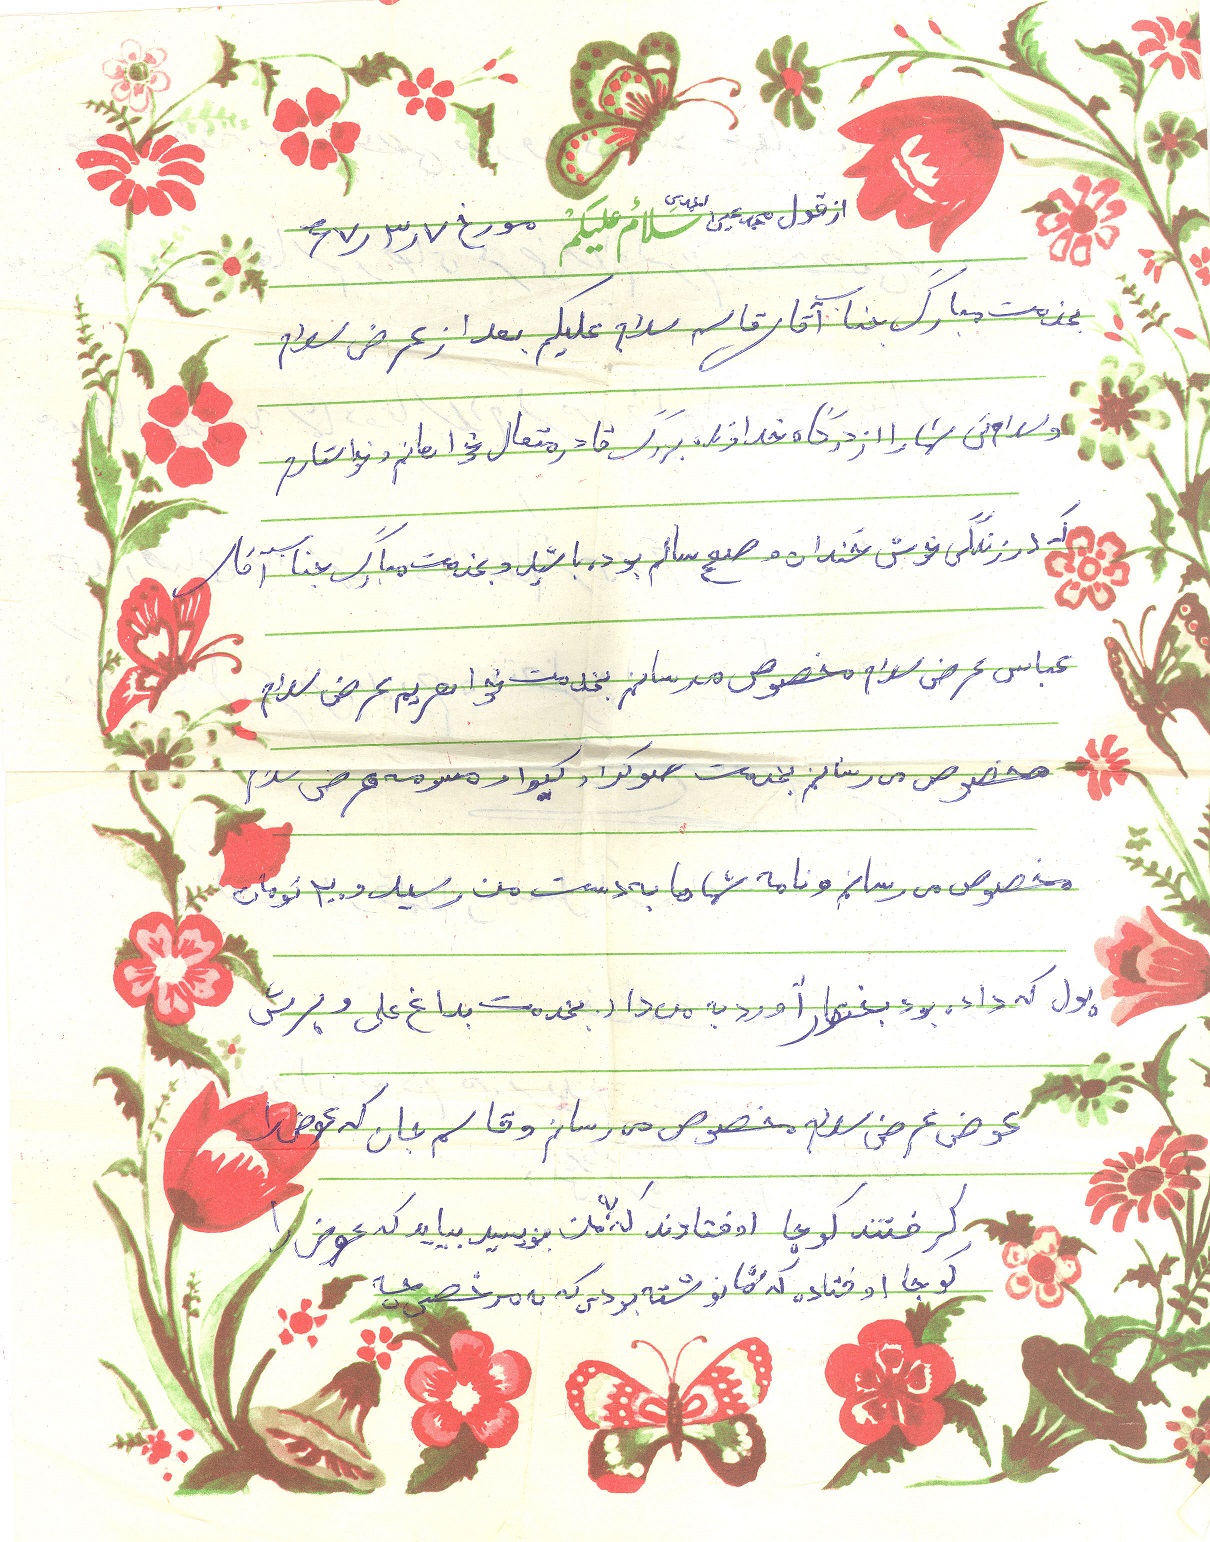 از قول محمد یحیی احمدی سلام علیکم مورخ ۶۷ر۳ر۷
بخدمت مبارک جناب آقای قاسم سلام علیکم بعد از عرض سلام
و سلامتی شما را از درگاه خداوند بزرگ قادر متعال خواهانم و خواستارم
که در زندگی خوش خندان و صحیح سالم بوده باشید و بخدمت مبارک جناب آقای
عباس عرض سلام مخصوص میرسانم بخدمت خواهریم عرض سلام
مخصوص می رسانم بخدمت و عرض سلام
مخصوص می رسانم و نامه شماها به دست من رسید و ۲۰۰ تومان
پول که داده بود بختیار آورد به می داد بخدمت بداغ علی و پسرش
عوض عرض سلام مخصوص می رسانم و قاسم جان که عوض را
گرفتند کوجا اوفتادند که بنویسید بیاید که عوض را
کوجا اوفتاده که شما نوشته بودین که به مرخصی